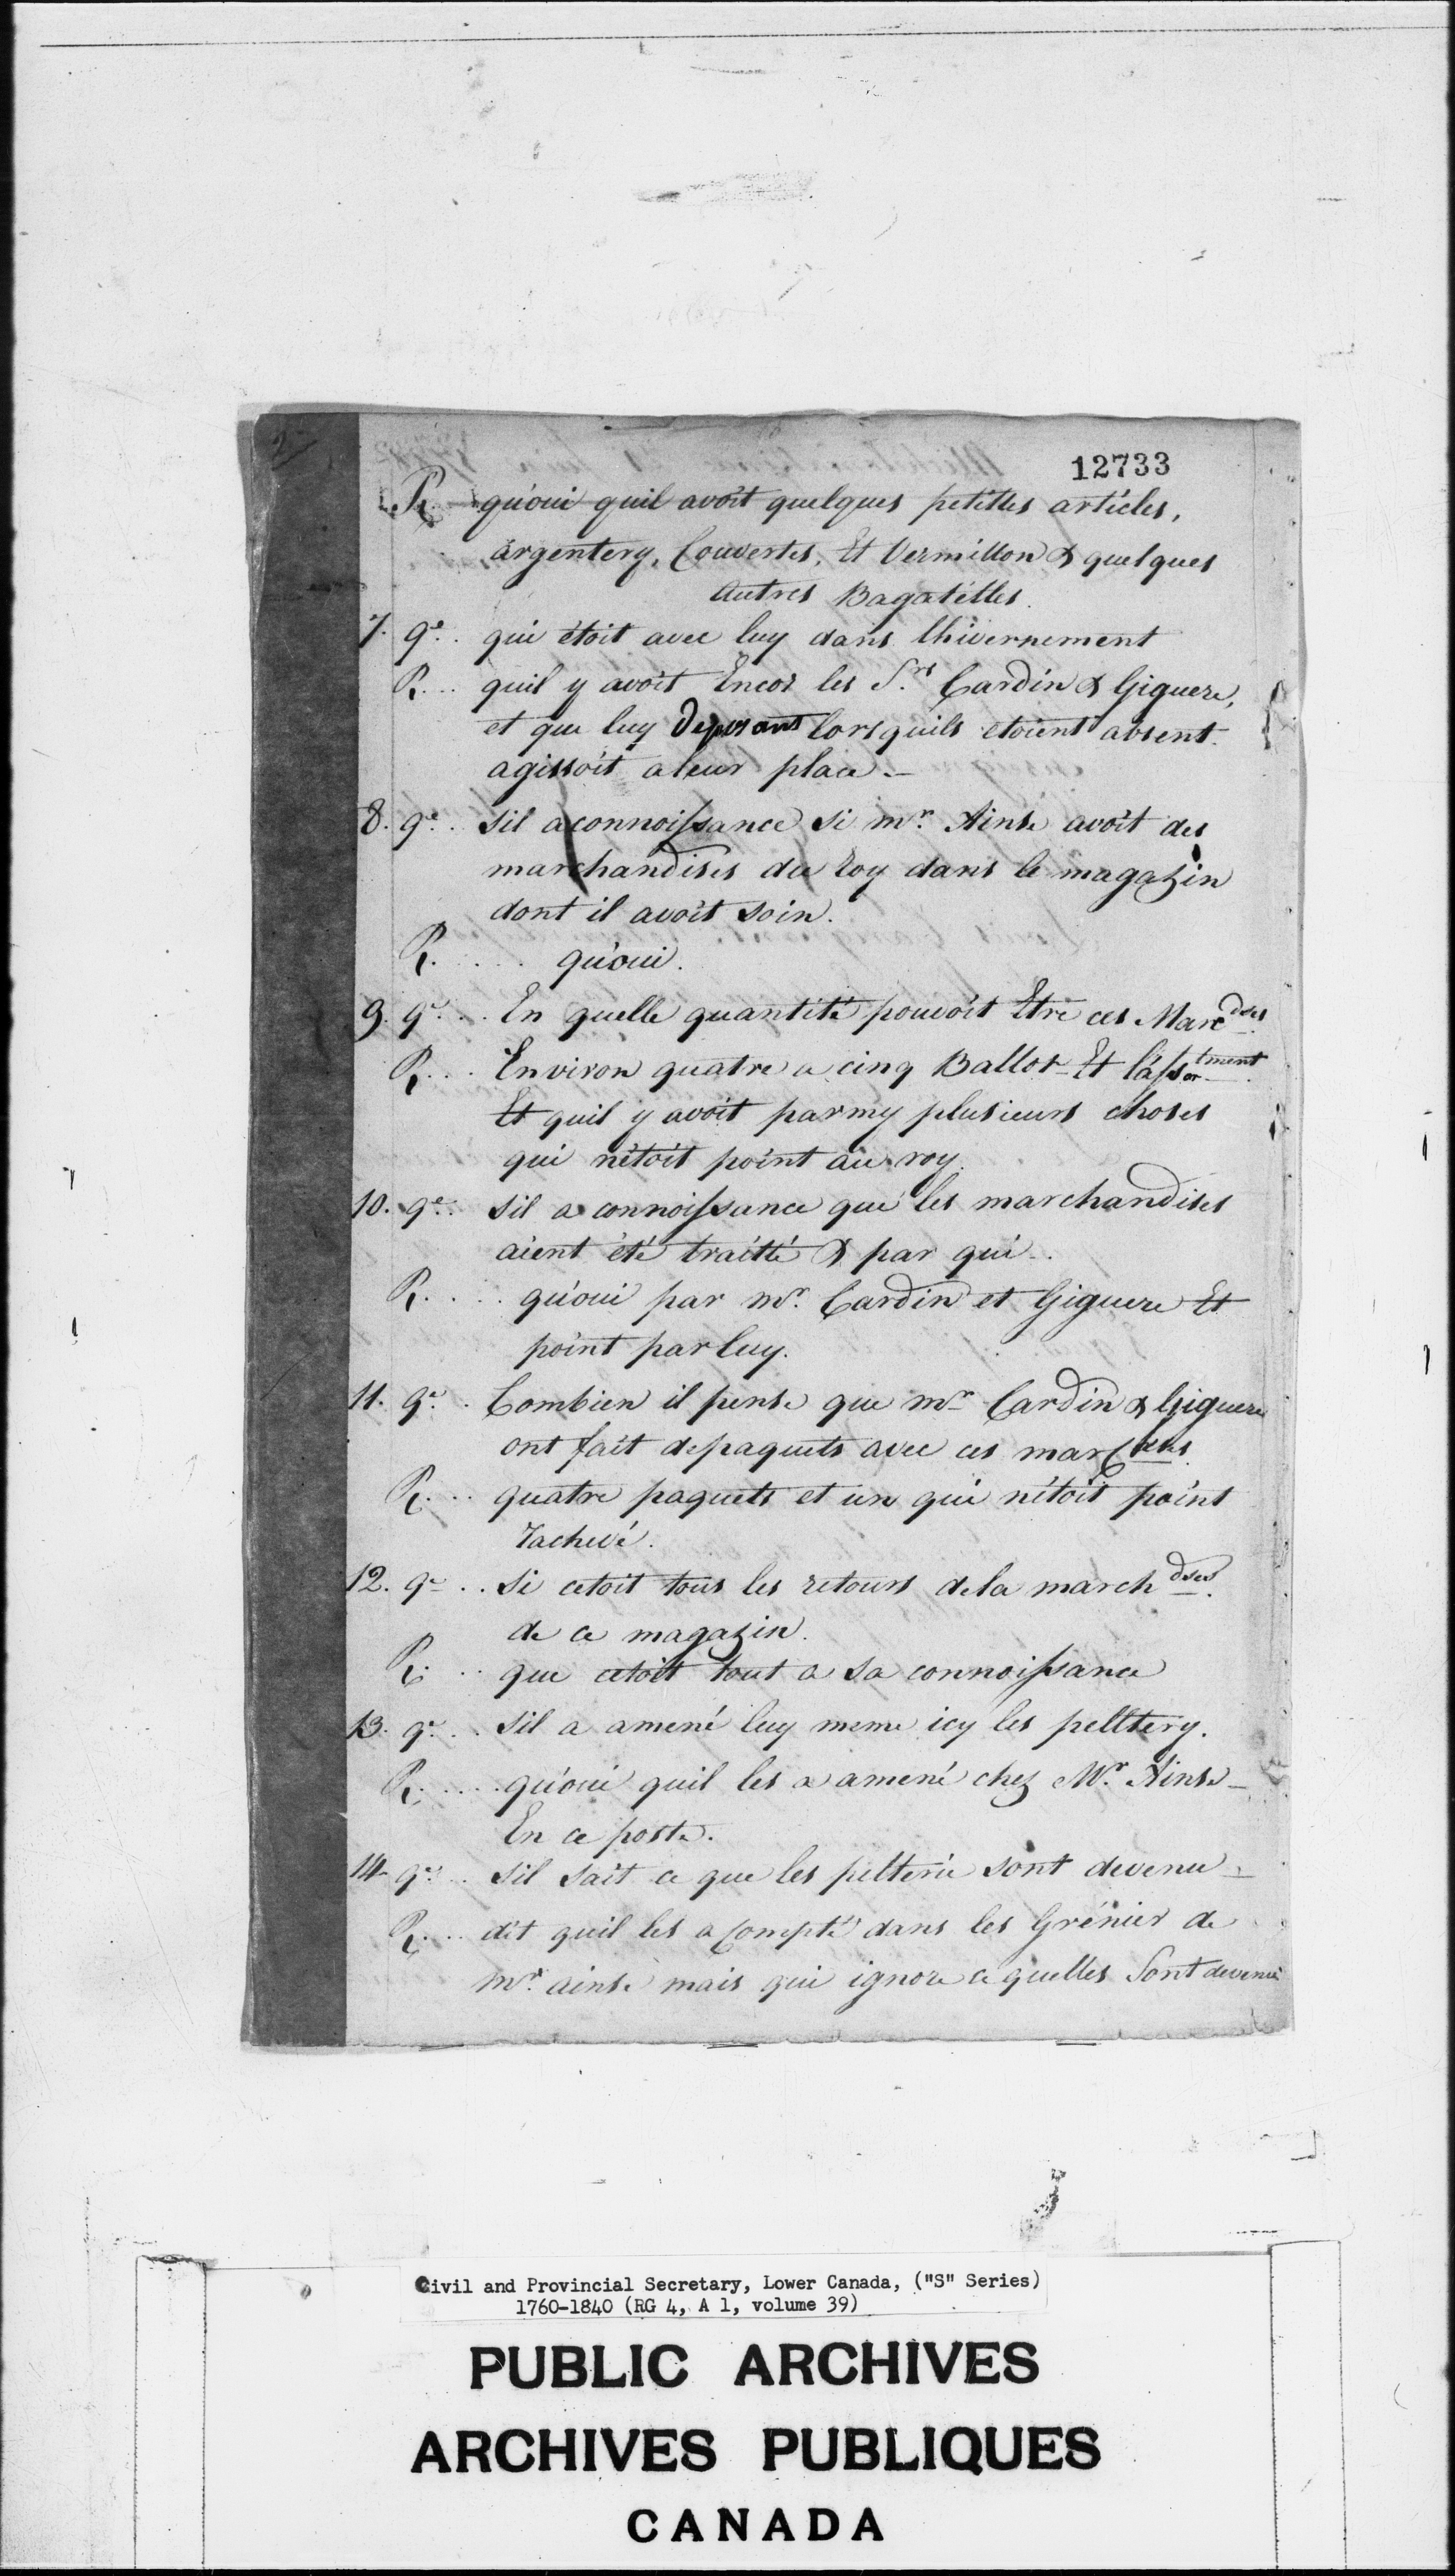 2
12733
R. qu'oui quil avoit quelques petittes articles,
argentery, Couvertes, Et Vermillon & quelques
Autres Bagatelles.
7. qe. qui étoit avec luy dans lhivernement
R... quil y avoit Encor les Srs Cardin & Giguere,
et que luy deposant lorsquils etoient absent
agissoit a leur place.-
8. qe. sil a connoissance si mr. Ainse avoit des
marchandises du roy dans le magazin
dont il avoit soin.
R..... qu'oui.
9. qe... En quelle quantité pouvoit Etre ces Marcdses
R... Environ quatre a cinq Ballot Et l'assortment
Et quil y avoit parmy plusieurs choses
qui n'étoit point au roy.
10. qe.. sil a connoissance que les marchandises
aient été traitté & par qui.
R.... qu'oui par mr. Cardin et Giguere Et
point par luy.
11. qe. Combien il pense que mr Cardin & Giguere
ont fait de paquets avec ces marchdses
R... quatre paquets et un qui n'étoit point
rachevé.
12. qe... Si cetoit tous les retours de la marchdses.
de ce magazin.
R... que cetoit tout a sa connoissance
13. qe.. Sil a amené luy meme icy les pelltery.
R.... qu'oui quil les a amené chez Mr. Ainse-
En ce poste.
14- qe.. sil sait ce que les pelterie sont devenu-
R... dit quil les a Compté dans les Grénier de
mr. ainse mais qui ignore ce quelles Sont devenue
Civil and Provincial Secretary, Lower Canada, ("S" Series)
1760-1840 (RG 4, A 1, volume 39)
PUBLIC ARCHIVES
ARCHIVES PUBLIQUES
CANADA